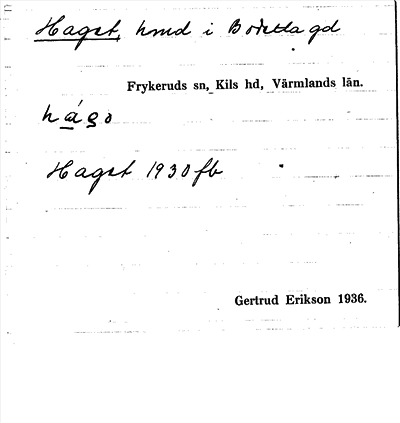 Hagst, hmd i Borstta gd
Frykeruds sn, Kils hd, Värmlands län.
Hagst 1930 fb
Gertrud Erikson 1936.